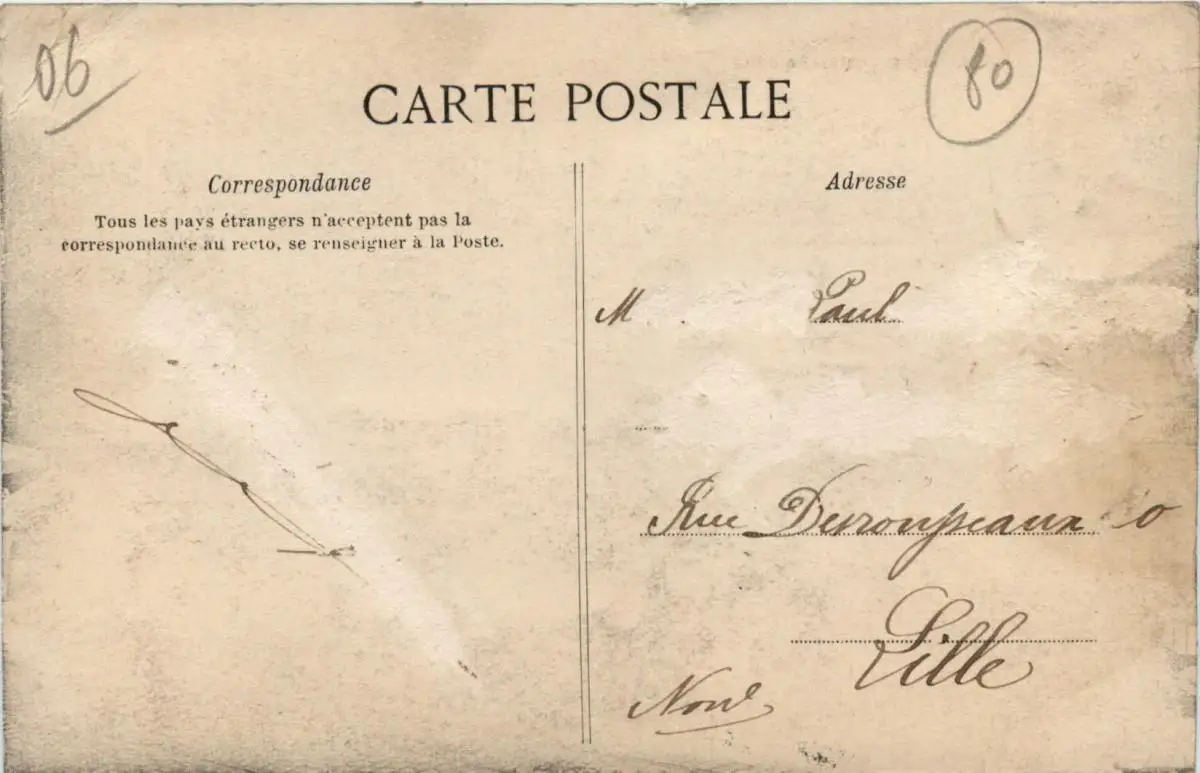 06
80
CARTE POSTALE
Correspondance
Tous les pays étrangers n'acceptent pas la
correspondance au recto, se renseigner à la Poste.
Adresse
M Paul
Rue
Lille
Nord